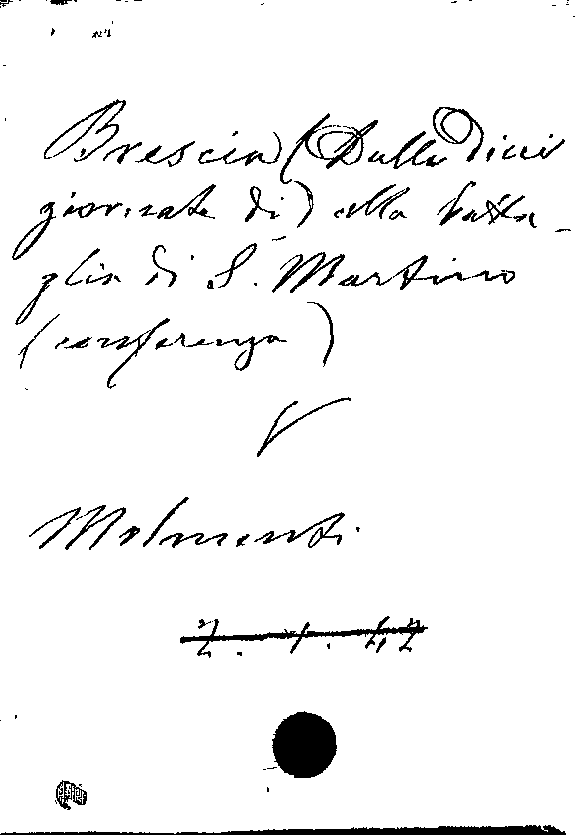 Brescia (Dalle dieci
giornate di) alla batta-
glia di S. Martino
(conferenza)
V
Molmenti
2. 1. 42